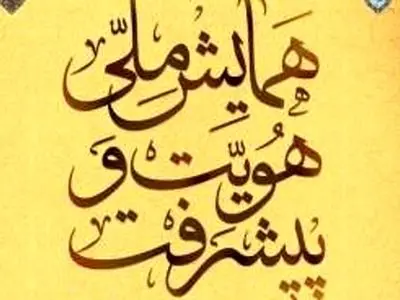 هَمایِش مِلّی
هُویَّت وَ
پیشرَفت